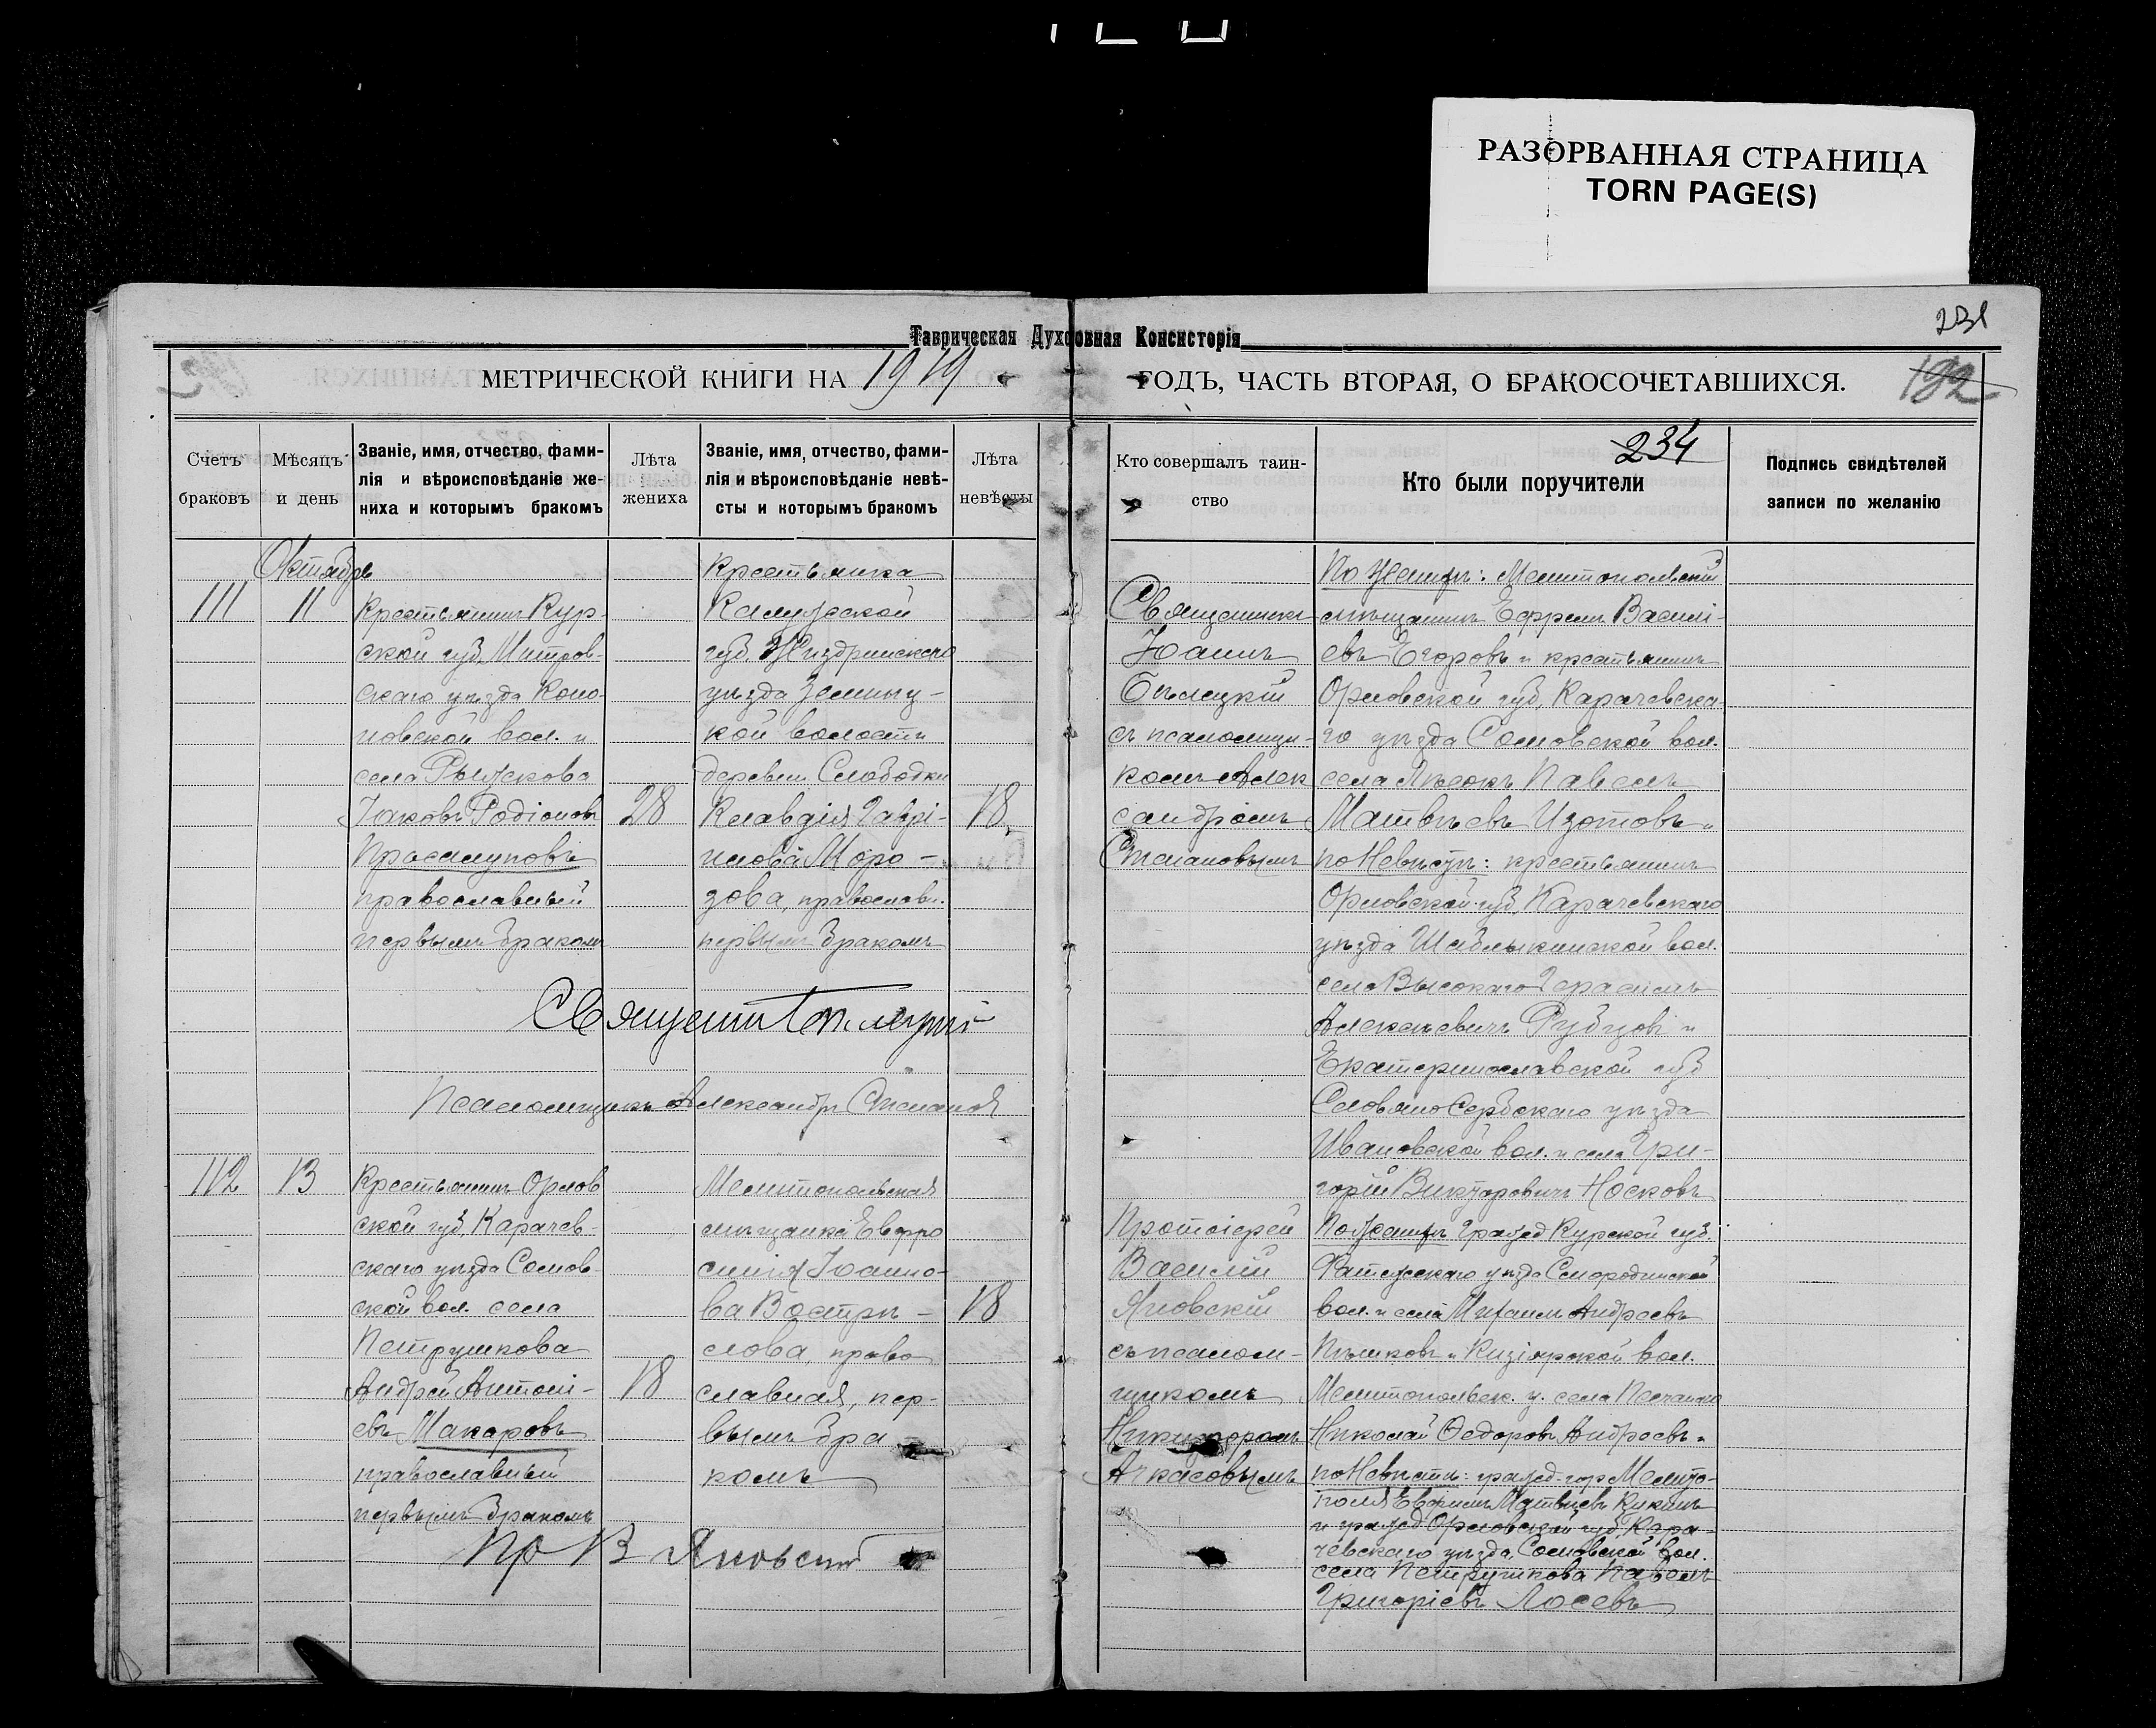 РАЗОРВАННАЯ СТРАНИЦА
TORN PAGE(S)
231
Таврическая Духовная Консисторія
МЕТРИЧЕСКОЙ КНИГИ НА 1919 ГОДЪ, ЧАСТЬ ВТОРАЯ, О БРАКОСОЧЕТАВШИХСЯ.
192
234
Счетъ
браковъ
Мѣсяцъ
и день
Званіе, имя, отчество, фами-
лія и вѣроисповѣданіе же-
ниха и которымъ бракомъ
Лѣта
жениха
Званіе, имя, отчество, фами-
лія и вѣроисповѣданіе невѣ-
сты и которымъ бракомъ
Лѣта
невѣсты
Кто совершалъ таин-
ство
Кто были поручители
Подпись свидѣтелей
записи по желанію
Октябрь
111
11
Крестьянинъ Кур-
ской губ.
скаго уѣзда
новской вол. и
села Рыжкова
Іаковъ Родіоновъ
28
православный
первымъ бракомъ
Крестьянка
Калужской
губ. Жиздринскаго
уѣзда
кой волости
деревни Слободки
Клавдія Гаврі-
илова Моро-
зова, православн.
первымъ бракомъ
18
Священникъ
Іоаннъ
Бѣлецкій
съ псаломщи-
комъ Алек
сандромъ
По женихѣ: Мелитопольскій
мѣщанинъ Ефремъ Василі-
евъ Егоровъ и крестьянинъ
Орловской губ. Карачевска-
го уѣзда Сомовской вол.
села Павелъ
Матвѣевъ Изотовъ и
по Невѣстѣ: крестьянинъ
Орловской губ. Карачевскаго
уѣзда Шаблыкинской вол.
села Высокаго Герасимъ
Алексѣевичъ Рубцовъ и
Екатеринославской губ
Славяно Сербскаго уѣзда
Ивановской вол. и села Гри-
горій Викторовичъ Носковъ
Псаломщикъ Александръ
112
13
Крестьянинъ Орлов
ской губ. Карачев-
скаго уѣзда Сомов
ской вол. села
Петрушкова
Андрей Антоні-
евъ Макаровъ
православный
первымъ бракомъ
18
Мелитопольская
мѣщанка Евфро
синія Іоанно-
ва Востри-
слова, право
славная, пер-
вымъ бра
комъ
18
Протоіерей
Василій
Яновскій
съ псалом-
щикомъ
Никифоромъ
Ачкасовымъ
По женихѣ гражд Курской губ.
Фатежскаго уѣзда Смородинской
вол. и села Михаилъ Андреевъ
вол.
Мелитопольск. у. села Песчанаго
Николай Ѳедоровъ Андреевъ и
по Невѣстѣ: гражд. гор Мелито-
поля Евфимъ Матвѣевъ
и гражд Орловской губ. Кара-
чевскаго уѣзда, Сомовской вол.
села Петрушкова Павелъ
Григоріевъ Лосевъ
Пр В Яновскій